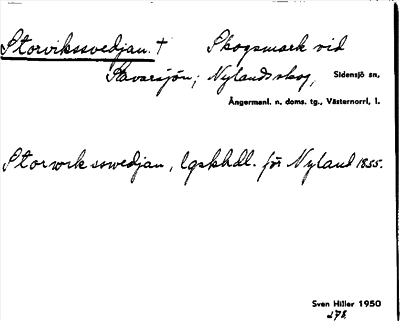 Storvikssvedjan. † Skogsmark vid
Stavarsjön, Nylands skog, Sidensjö sn,
Ångermanl. n. doms. tg., Västernorrl. l.
Storwikssvedjan, lgskhdl. för Nyland 1855.
Sven Hiller 1950
278